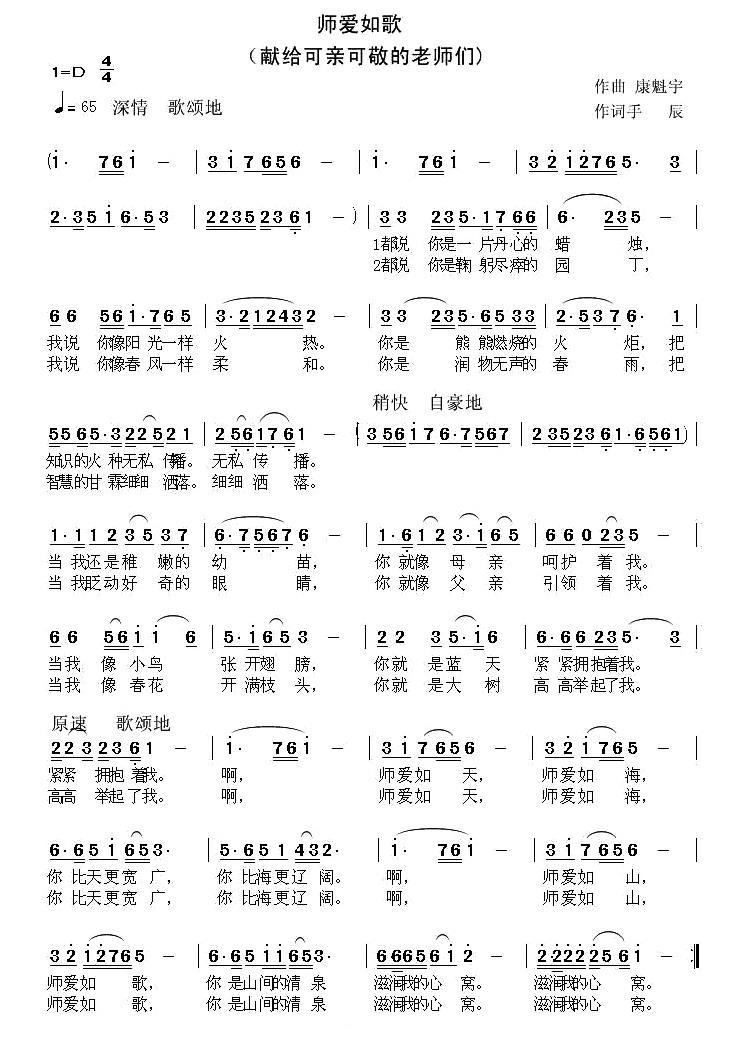 师爱如歌
（献给可亲可敬的老师们）
1=D 4/4
♩= 65 深情 歌颂地
作曲 康魁宇
作词手 辰
(1· 761 - | 3 1 7656 - | 1· 761 - | 32 12765· 3 |
2·351 6·53 | 22352361 - ) | 33 235·1766 | 6· 235 - |
1都说 你是一 片丹心的 蜡 烛，
2都说 你是鞠 躬尽瘁的 园 丁，
66 561·765 | 3·212432 - | 33 235·6533 | 2·5376· 1 |
我说 你像阳 光一样 火 热。 你是 熊 熊燃烧的 火 炬，把
我说 你像春 风一样 柔 和。 你是 润 物无声的 春 雨，把
稍快 自豪地
5565·322521 | 2561761 - | (356176·7567 | 2352361·6561) |
知识的火 种无私 传播。 无私 传 播。
智慧的甘 霖细细 洒落。 细细 洒 落。
1·112 3537 | 6·75676 - | 1·612 3·165 | 660235 - |
当 我还是稚 嫩的 幼 苗， 你 就像 母 亲 呵护 着 我。
当 我眨动好 奇的 眼 睛， 你 就像 父 亲 引领 着 我。
66 561 1 6 | 5·165 3 - | 22 35·16 | 6·66235· 3 |
当我 像 小鸟 张 开翅 膀， 你就 是蓝 天 紧 紧拥抱着我。
当我 像 春花 开 满枝 头， 你就 是大 树 高 高举起了我。
原速 歌颂地
2232361 - | 1· 761 - | 31 7656 - | 31 7656 - |
紧紧 拥抱 着我。 啊， 师爱如 天， 师爱如 海，
高高 举起了 我。 啊， 师爱如 天， 师爱如 海，
6·651 653· | 5·651 432· | 1· 761 - | 31 7656 - |
你 比天更宽 广， 你 比海更辽 阔。 啊， 师爱如 山，
你 比天更宽 广， 你 比海更辽 阔。 啊， 师爱如 山，
32 12765 - | 6·6511653· | 6665612 - | 2·2222561 - :‖
师爱如 歌， 你 是山间的清 泉 滋润我的心 窝。 滋润我的心 窝。
师爱如 歌， 你 是山间的清 泉 滋润我的心 窝。 滋润我的心 窝。